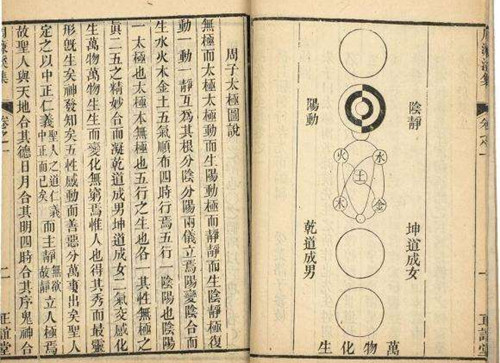 周濂溪集
卷之一
一
正誼堂
陰靜
陽動
火
水
土
木
金
坤道成女
乾道成男
萬物化生
周子太極圖說
無極而太極太極動而生陽動極而靜靜而生陰靜極復
動一動一靜互爲其根分陰分陽兩儀立焉陽變陰合而
生水火木金土五氣順布四時行焉五行一陰陽也陰陽
一太極也太極本無極也五行之生也各一其性無極之
眞二五之精妙合而凝乾道成男坤道成女二氣交感化
生萬物萬物生生而變化無窮焉惟人也得其秀而最靈
形旣生矣神發知矣五性感動而善惡分萬事出矣聖人
定之以中正仁義聖人之道仁義中正而已矣而主靜無欲故靜立人極焉
故聖人與天地合其德日月合其明四時合其序鬼神合
周濂溪集
卷之一
一
正誼堂